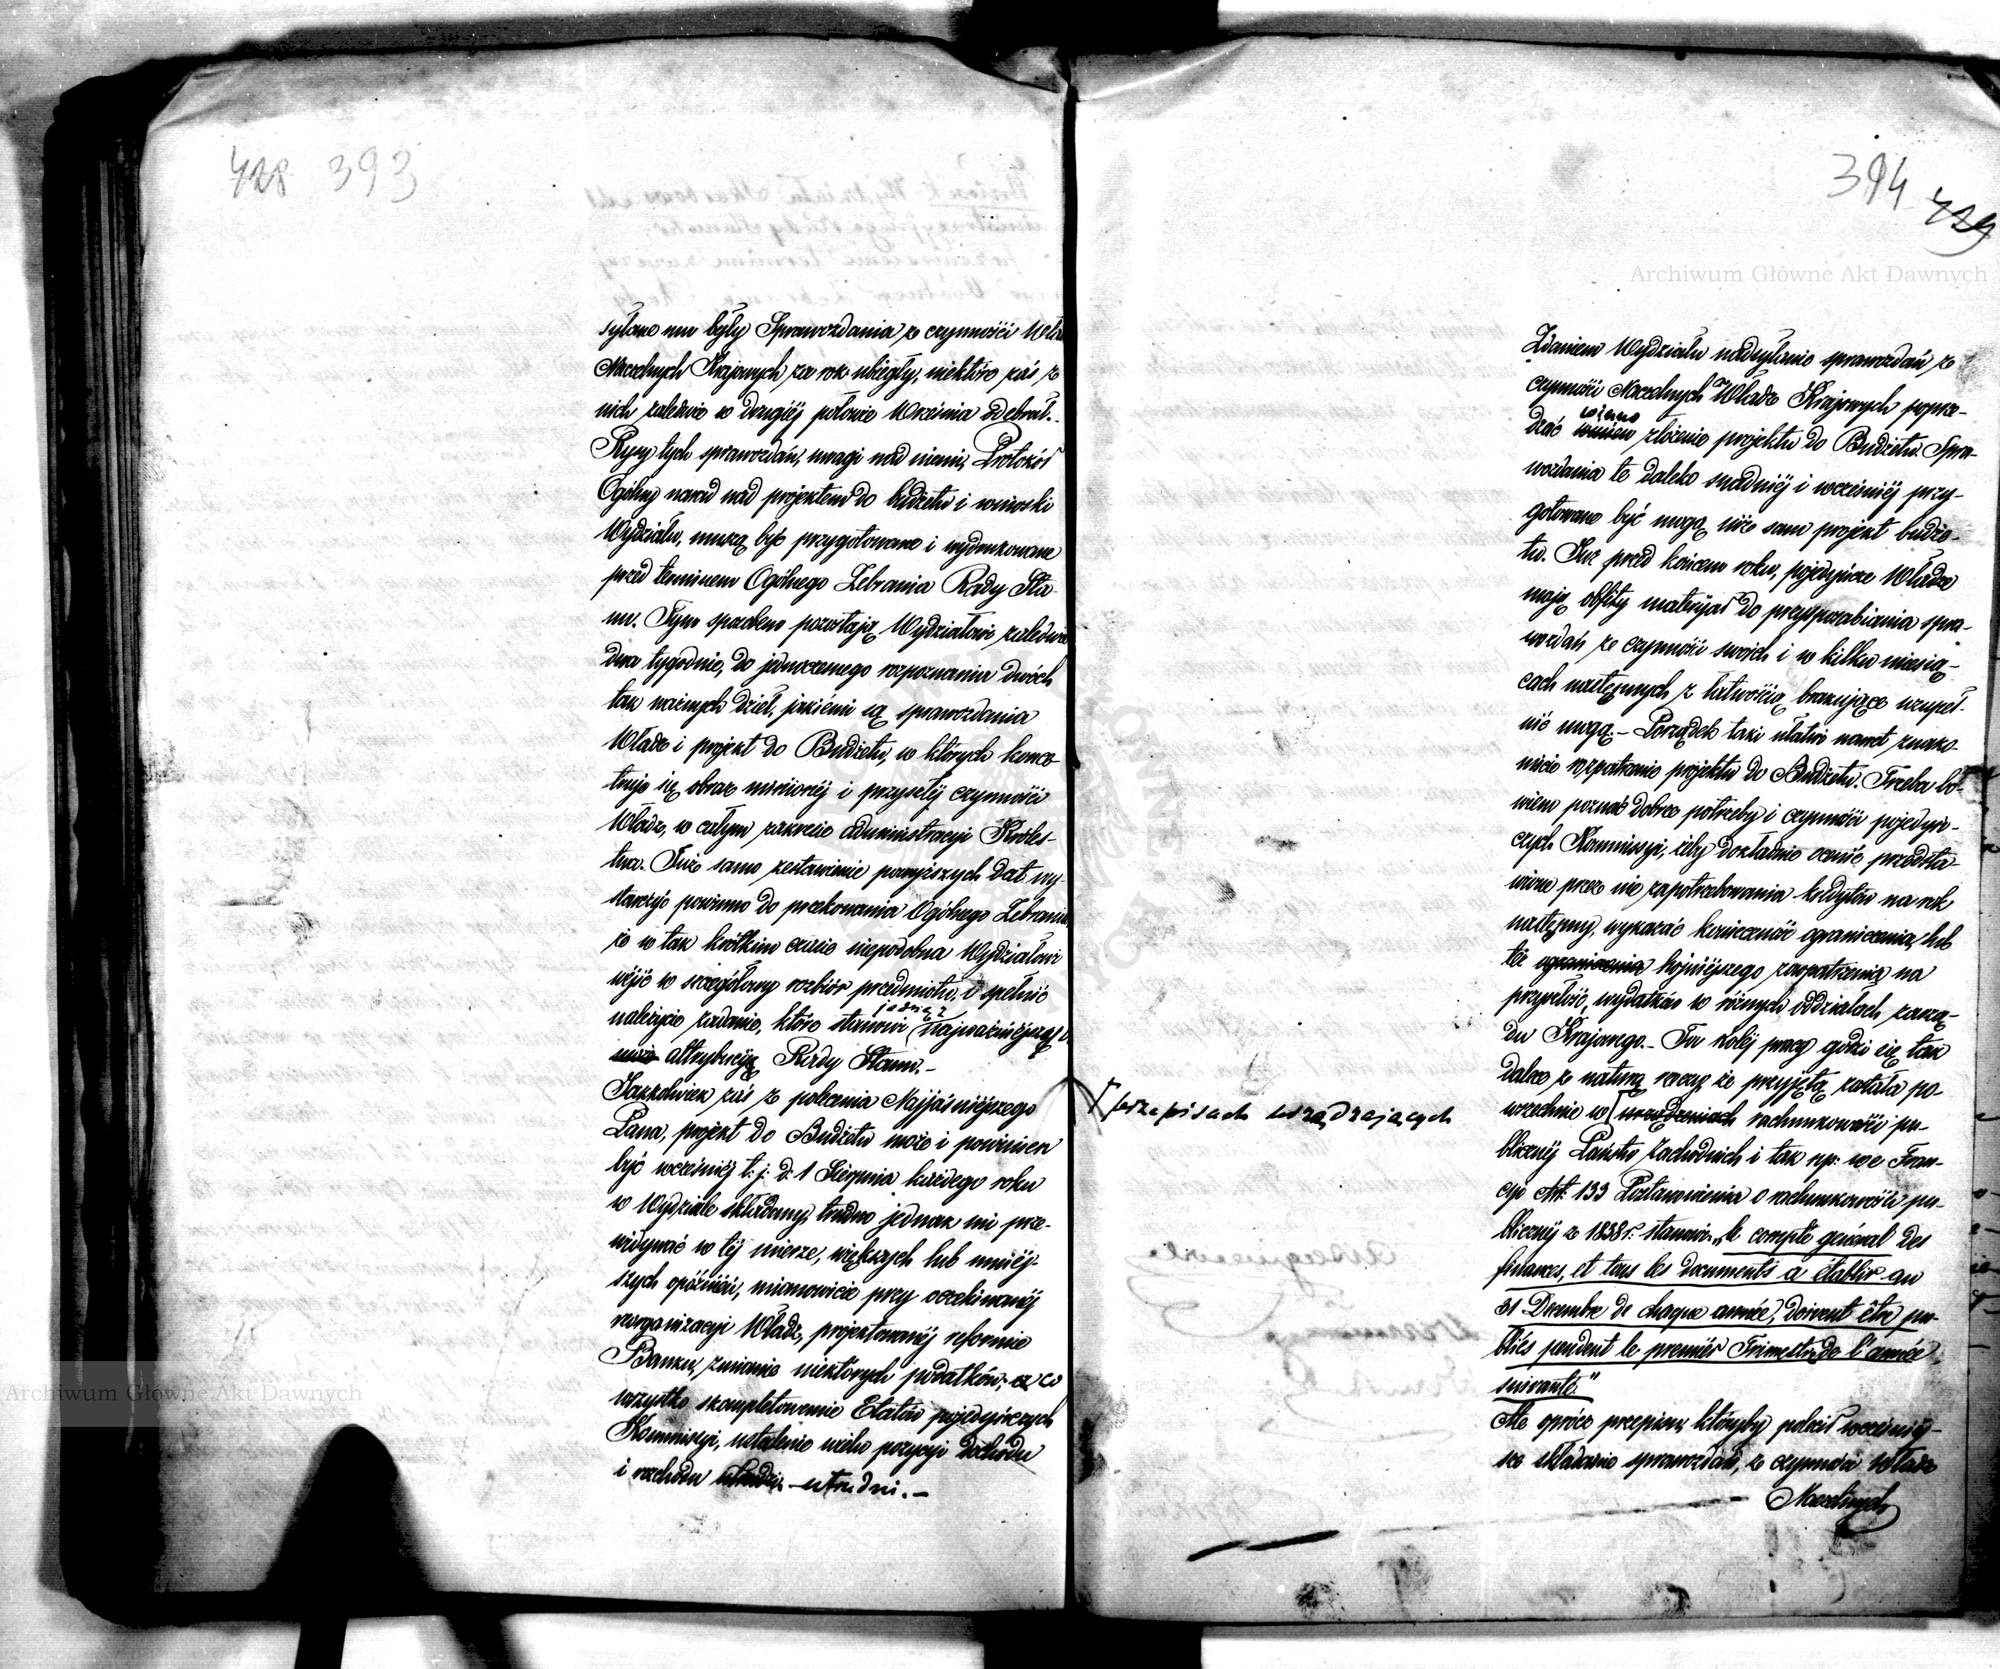 428 393
syłane mu były Sprawozdania z czynności Władz
Naczelnych Krajowych za rok ubiegły, niektóre zaś z
nich zaledwie w drugiéj połowie Września odebrał.
Rysy tych sprawozdań, uwagi nad niemi, Protokół
Ogólny narad nad projektem do budżetu i wnioski
Wydziału, muszą być przygotowane i wydrukowane
przed terminem Ogólnego Zebrania Rady Sta-
nu. Tym sposobem pozostają Wydziałowi zaledwie
dwa tygodnie, do jednoczesnego rozpoznania dwóch
tak ważnych dzieł, jakiemi są sprawozdania
Władz i projekt do Budżetu, w których koncen-
truje się obraz minionéj i przyszłéj czynności
Władz, w całym zakresie administracyi Króles-
twa. Już samo zestawienie powyższych dat wy-
starczyć powinno do przekonania Ogólnego Zebrania,
że w tak krótkim czasie niepodobna Wydziałowi
wejść w szczegółowy rozbiór przedmiotu, i spełnić
należycie zadanie, które stanowi jedną z najważniejszych
attrybucyą Rady Stanu.-
Jakkolwiek zaś z polecenia Najjaśniejszego
Pana, projekt do Budżetu może i powinien
być wcześniéj t. j. d. 1 Sierpnia każdego roku
w Wydziale składany, trudno jednak nie prze-
widywać w téj mierze, większych lub mniéj-
szych opóźnień, mianowicie przy oczekiwanéj
reorganizacyi Władz, projektowanéj reformie
Banku, zmianie niektórych podatków, co
wszystko skompletowanie Etatów pojedyńczych
Kommissyi, ustalenie wielu pozycyi dochodu
i rozchodu utrudni.-
394
429
Archiwum Główne Akt Dawnych
Zdaniem Wydziału nadsyłanie sprawozdań z
czynności Naczelnych Władz Krajowych poprze-
dzać winno złożenie projektu do Budżetu. Spra-
wozdania te daleko snadniéj i wcześniéj przy-
gotowane być mogą niż sam projekt budże-
tu. Już przed końcem roku, pojedyńcze Władze
mają obfity materyał do przysposabiania spra-
wozdań ze czynności swoich i w kilku miesią-
cach następnych z łatwością brakujące uzupeł-
nić mogą.- Porządek taki ułatwi nawet znako-
micie rozpatrzenie projektu do Budżetu. Trzeba bo-
wiem poznać dobrze potrzeby i czynności pojedyń-
czych Kommissyi, żeby dokładnie ocenić przedsta-
wione przez nie zapotrzebowania kredytów na rok
następny, wykazać konieczność ograniczenia, lub
też ograniczenia hojniejszego zaopatrzenia na
przyszłość, wydatków w różnych oddziałach zarzą-
du Krajowego.- Ta koléj pracy godzi się tak
dalece z naturą rzeczy że przyjętą została po-
wszechnie w urządzeniach rachunkowości pu-
przepisach urządzających
blicznéj Państw zachodnich i tak np: we Fran-
cyi Art. 133 Postanowienia o rachunkowości pu-
blicznéj z 1838 r. stanowi: „le compte général des
finances, et tous les documents à établir au
31 Decembre de chaque année, doivent être pu-
bliés pendent le premiér Trimestre de l'année
suivante."
Ale oprócz przepisu, któryby polecił wcześniéj-
sze składanie sprawozdań, z czynności Władz
Naczelnych
Archiwum Główne Akt Dawnych